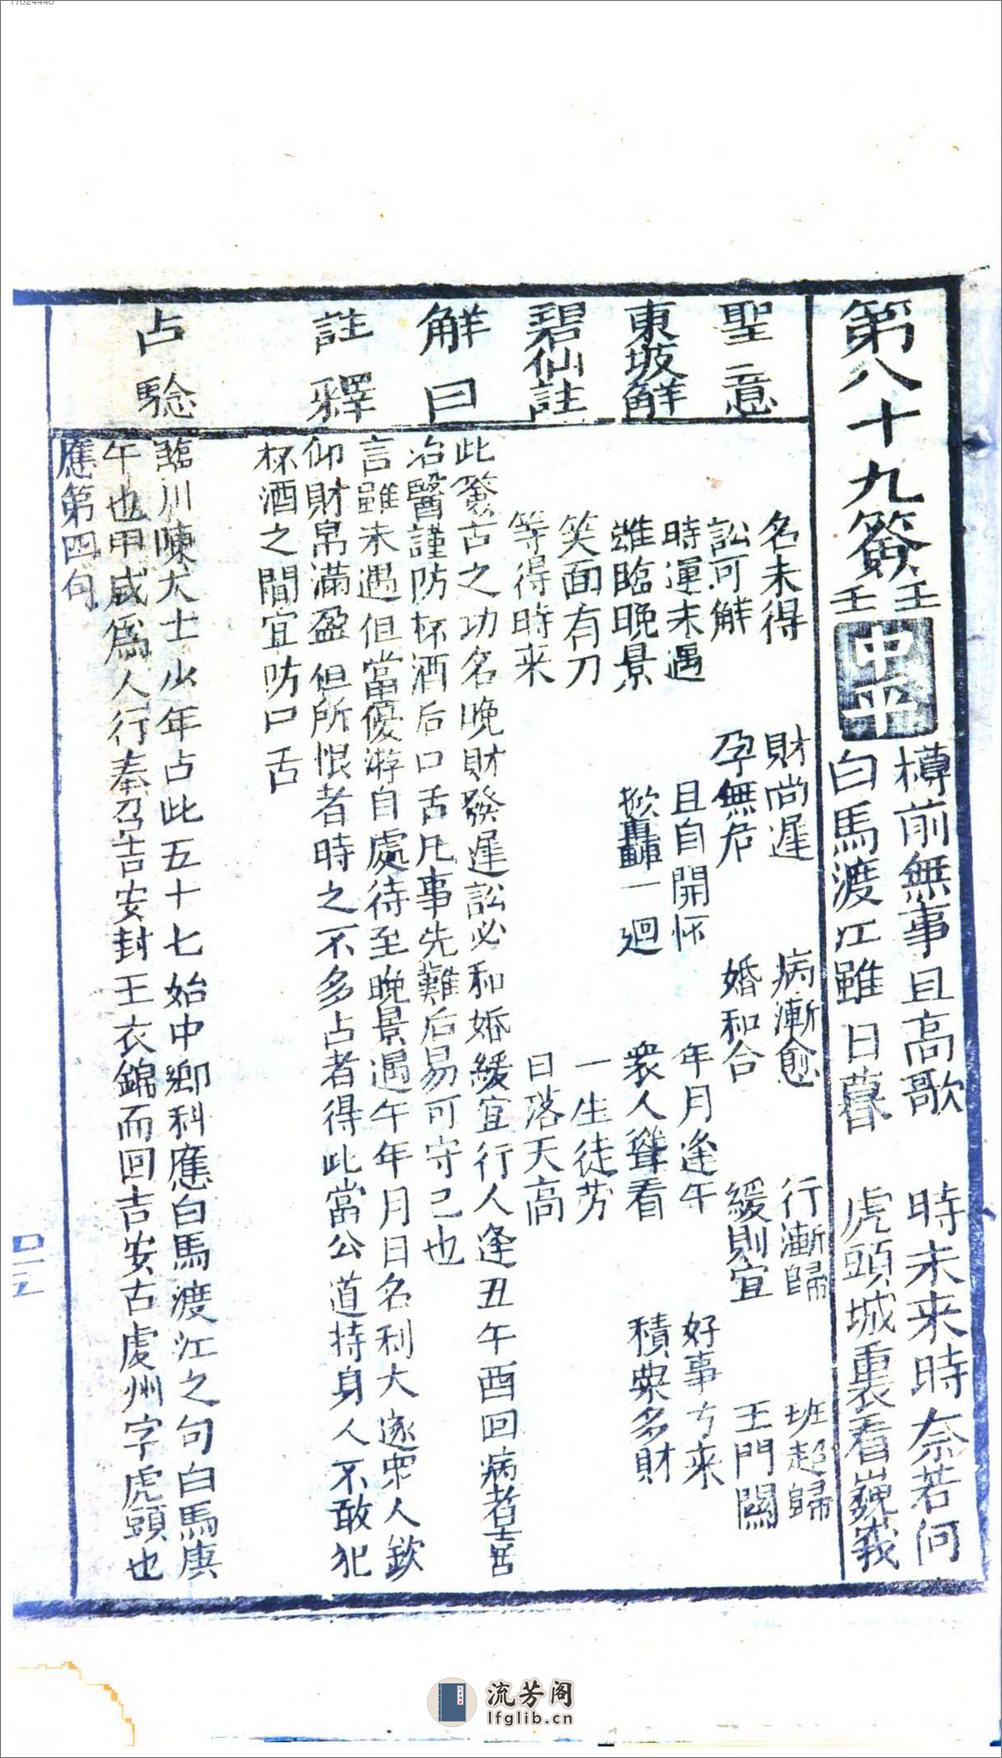 11024440
第八十九簽 壬壬 中平
樽前無事且高歌 時未来時奈若何
白馬渡江雖日暮 虎頭城裏看巍峩
聖意
名未得 財尚遅 病漸愈 行漸歸 班超歸
訟可解 孕無危 婚和合 緩則宜 玉門關
東坡解
時運未遇 且自開怀 年月逢午 好事方来
雖臨晚景 掀轟一廻 衆人聳看 積典多財
碧仙註
笑面有刀 一生徒劳
等得時来 日落天高
解曰
此簽占之功名晚財發遅訟必和婚緩宜行人逢丑午酉回病者善
治醫謹防杯酒后口舌凡事先難后易可守己也
註釋
言雖未遇但當優游自處待至晚景遇午年月日名利大遂中人欽
仰財帛滿盈但所恨者時之不多占者得此當公道持身人不敢犯
杯酒之間宜防口舌
占驗
臨川陳大士少年占此五十七始中鄉科應白馬渡江之句白馬庚
午也甲戍爲人行奉召吉安封王衣錦而回吉安古虔州字虎頭也
應第四句
流芳阁
lfglib.cn